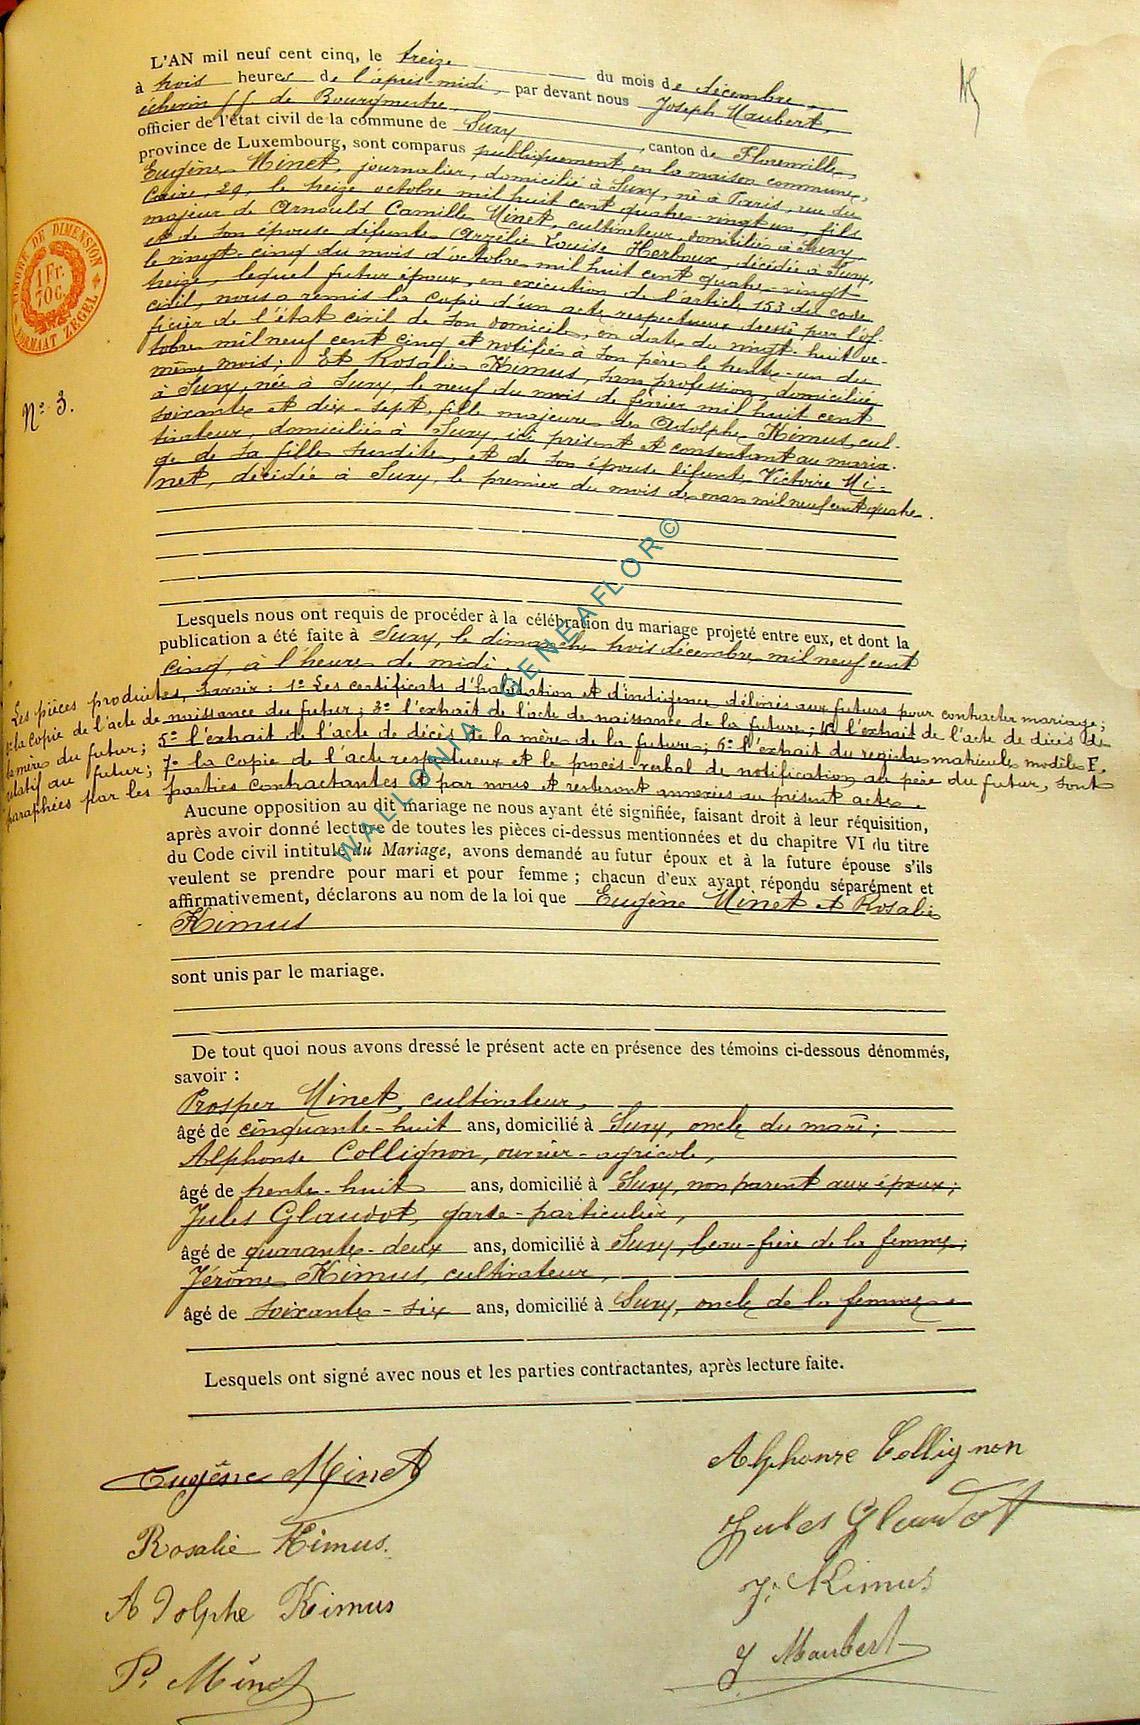 L'AN mil neuf cent cinq, le treize du mois de décembre
à trois heures de l'après-midi, par devant nous Joseph Maubert,
échevin ff. de Bourgmestre
officier de l'état civil de la commune de Suxy, canton de Florenville
province de Luxembourg, sont comparus publiquement, en la maison commune,
Eugène Minet, journalier, domicilié à Suxy, né à Paris, rue du
Caire, 29, le treize octobre mil huit cent quatre-vingt un, fils
majeur de Arnould Camille Minet, cultivateur, domicilié à Suxy
et de son épouse défunte Louise Herboux, décédée à Suxy,
le vingt-cinq du mois d'octobre mil huit cent quatre-vingt
treize, lequel futur époux, en exécution de l'article 153 du code
civil, nous a remis la copie d'un acte respectueux dressé par l'of-
ficier de l'état civil de son domicile, en date du vingt-huit oc-
tobre mil neuf cent cinq et notifiés à son père le trente-un du
même mois; Et Rosalie Kimus, sans profession, domiciliée
à Suxy, née à Suxy, le neuf du mois de février mil huit cent
soixante et dix-sept, fille majeure de Adolphe Kimus, cul-
tivateur, domicilié à Suxy, ici présent et consentant au maria-
ge de sa fille susdite, et de son épouse défunte Victoire Mi-
net, décédée à Suxy, le premier du mois de mars mil neuf cent quatre.
1 Fr.
70 C.
TIMBRE DE DIMENSION
FORMAAT ZEGEL
Nº 3.
Lesquels nous ont requis de procéder à la célébration du mariage projeté entre eux, et dont la
publication a été faite à Suxy, le dimanche trois décembre mil neuf cent
cinq, à l'heure de midi.
Les pièces produites, savoir: 1º Les certificats d'habitation et d'indigence délivrés aux futurs pour contracter mariage;
2º la copie de l'acte de naissance du futur; 3º l'extrait de l'acte de naissance de la future; 4º l'extrait de l'acte de décès de
la mère du futur; 5º l'extrait de l'acte de décès de la mère de la future; 6º l'extrait du registre matricule modèle F.
relatif au futur; 7º la copie de l'acte respectueux et le procès-verbal de notification au père du futur, sont
paraphées par les parties contractantes et par nous et resteront annexées au présent acte.
Aucune opposition au dit mariage ne nous ayant été signifiée, faisant droit à leur réquisition,
après avoir donné lecture de toutes les pièces ci-dessus mentionnées et du chapitre VI du titre
du Code civil intitulé du Mariage, avons demandé au futur époux et à la future épouse s'ils
veulent se prendre pour mari et pour femme ; chacun d'eux ayant répondu séparément et
affirmativement, déclarons au nom de la loi que Eugène Minet et Rosalie
Kimus
sont unis par le mariage.
De tout quoi nous avons dressé le présent acte en présence des témoins ci-dessous dénommés,
savoir :
Prosper Minet, cultivateur,
âgé de cinquante-huit ans, domicilié à Suxy, oncle du mari;
Alphonse Collignon, ouvrier-agricole,
âgé de trente-huit ans, domicilié à Suxy, non parent aux époux;
Jules Glaudot, garde-particulier,
âgé de quarante-deux ans, domicilié à Suxy, beau-frère de la femme;
Jérôme Kimus, cultivateur,
âgé de soixante-six ans, domicilié à Suxy, oncle de la femme.
Lesquels ont signé avec nous et les parties contractantes, après lecture faite.
Eugène Minet
Alphonse Collignon
Rosalie Kimus.
Jules Glaudot
Adolphe Kimus
J. Kimus
P. Minet
J Maubert
WALLONIA GENEAFLOR©